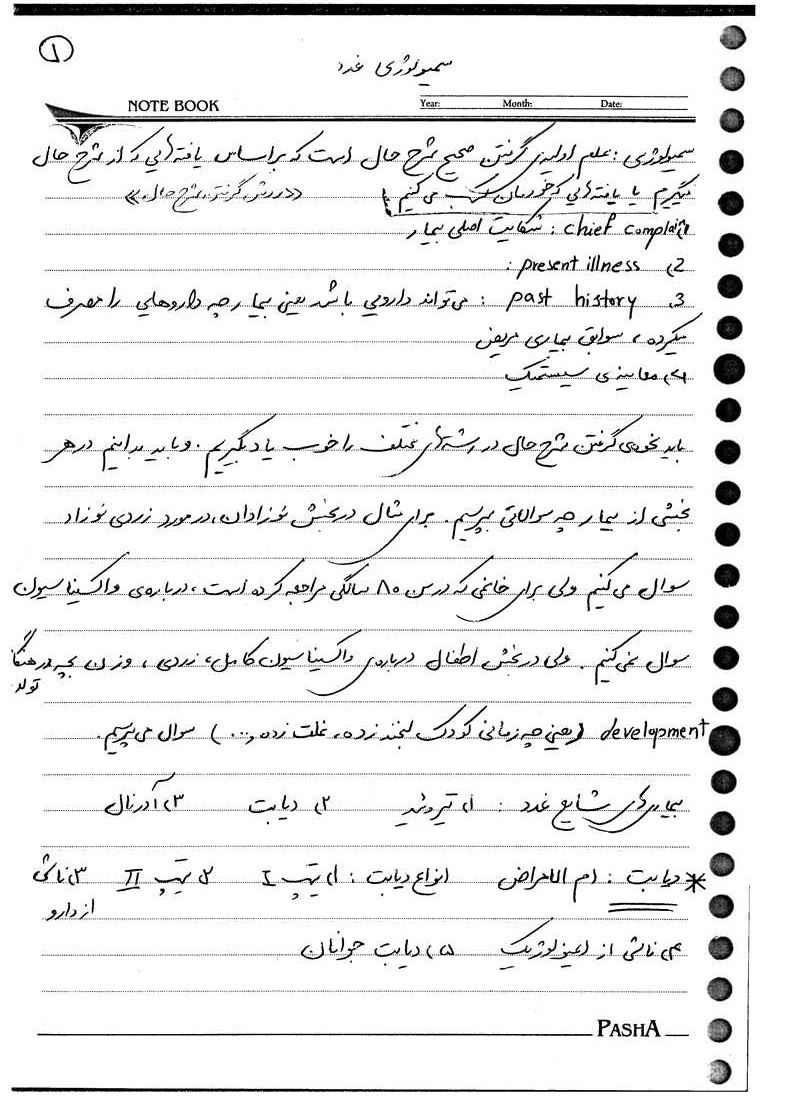 ۱
سمیولوژی غدد
NOTE BOOK Year: Month: Date:
سمیولوژی: علم اولیه‌ی گرفتن صحیح شرح حال است که براساس یافته‌ایی که از شرح حال
میگیرم یا یافته‌ایی که خودمان کسب می‌کنیم. «روش گرفتن شرح حال»
1) chief complain: شکایت اصلی بیمار
2) present illness:
3) past history: می‌تواند دارویی باشد یعنی بیمار چه داروهایی را مصرف
میکرده، سوابق بیماری مریض
۴) معاینه‌ی سیستمیک
باید نحوه‌ی گرفتن شرح حال در رشته‌های مختلف را خوب یاد بگیریم. و باید بدانیم در هر
بخشی از بیمار چه سوالاتی بپرسیم. برای مثال در بخش نوزادان، در مورد زردی نوزاد
سوال می‌کنیم ولی برای خانمی که در سن ۸۰ سالگی مراجعه کرده است، درباره‌ی واکسیناسیون
سوال نمی‌کنیم. ولی در بخش اطفال درباره‌ی واکسیناسیون کامل، زردی، وزن بچه در هنگام
تولد
development (یعنی چه زمانی کودک لبخند زده، غلت زده و...) سوال می‌پرسیم.
بیماری‌های شایع غدد: ۱) تیروئید ۲) دیابت ۳) آدرنال
* دیابت: ام الامراض انواع دیابت: ۱) تیپ I ۲) تیپ II ۳) ناشی
از دارو
۴) ناشی از ایمنولوژیک ۵) دیابت جوانان
PASHA